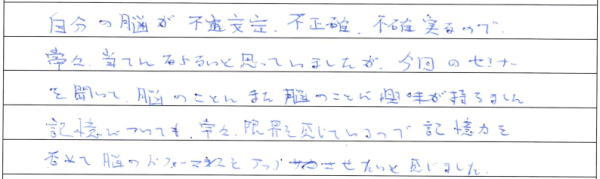 自分の脳が不安定、不正確、不確実なので、
常々、当てにならないと思っていましたが、今回のセミナー
を聞いて、脳のことにまた脳のことに興味が持てました
記憶についても、常々、限界を感じているので記憶力を
含めて脳のパフォーマンスをアップさせたいと感じました。